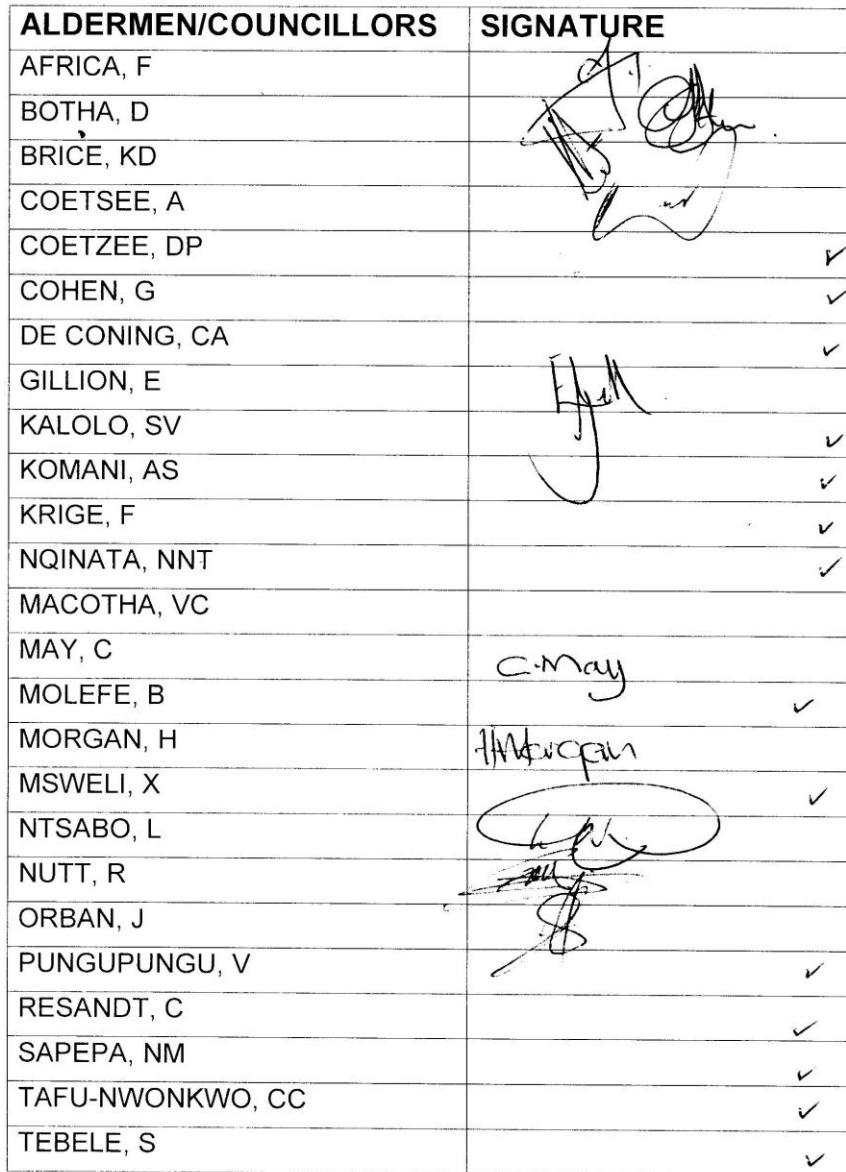 ALDERMEN/COUNCILLORS SIGNATURE
AFRICA, F
BOTHA, D
BRICE, KD
COETSEE, A
COETZEE, DP ✓
COHEN, G ✓
DE CONING, CA ✓
GILLION, E
KALOLO, SV ✓
KOMANI, AS ✓
KRIGE, F ✓
NQINATA, NNT ✓
MACOTHA, VC
MAY, C C.May
MOLEFE, B ✓
MORGAN, H HMorgan
MSWELI, X ✓
NTSABO, L
NUTT, R
ORBAN, J
PUNGUPUNGU, V ✓
RESANDT, C ✓
SAPEPA, NM ✓
TAFU-NWONKWO, CC ✓
TEBELE, S ✓